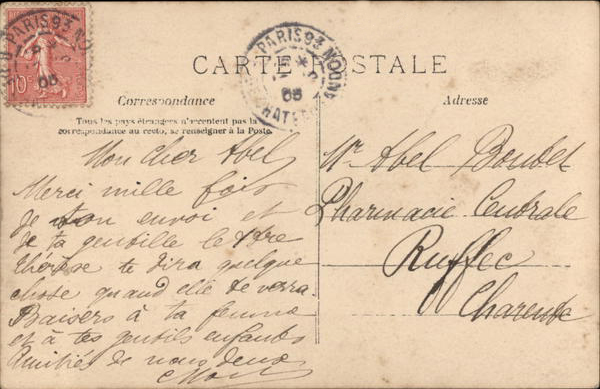 PARIS 93
10c
05
PARIS 93
05
CARTE POSTALE
Correspondance
Adresse
Tous les pays étrangers n'acceptent pas la
correspondance au recto, se renseigner à la Poste.
Mon Cher Abel
Merci mille fois
de ton envoi et
de ta gentille lettre
Thérèse te dira quelque
chose quand elle te verra.
Baisers à ta femme
et à tes gentils enfants
Amitiés de nous deux
Mr Abel Boutet
Pharmacie Centrale
Ruffec
Charente